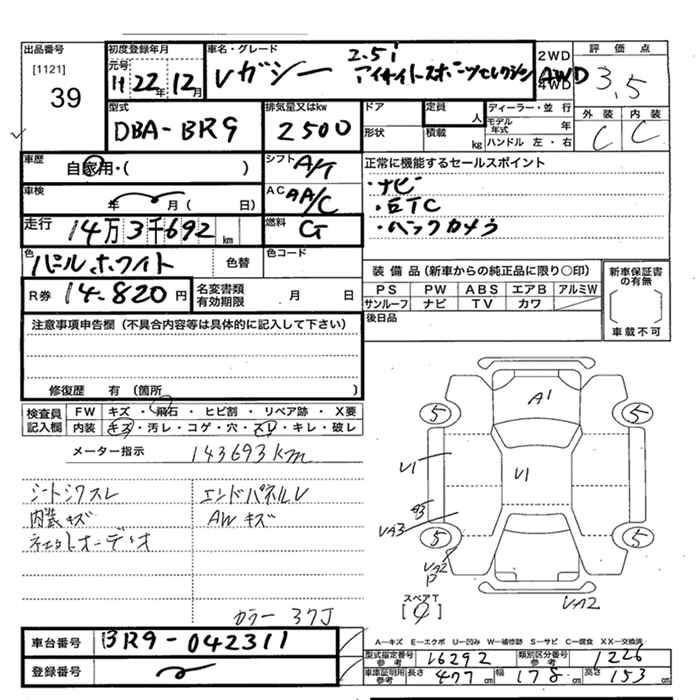 出品番号 初度登録年月 車名・グレード 2.5i 2WD 評価点
[1121] 元号 H22年12月 レガシー アイサイトスポーツセレクション AWD 4WD 3.5
39
型式 排気量又はkw ドア 定員 人 ディーラー・並行 外装 内装
DBA-BR9 2500 形状 積載 kg モデル年式 年 C C
ハンドル 左・右
車歴 自家用・( ) シフト A/T 正常に機能するセールスポイント
車検 年 月( 日) AC AA/C ・ナビ
・ETC
走行 14万3千692km 燃料 G ・バックカメラ
色 パールホワイト 色替 色コード
装備品(新車からの純正品に限り○印) 新車保証書の有無
R券 14-820円 名変書類有効期限 月 日 PS PW ABS エアB アルミW
サンルーフ ナビ TV カワ 車載不可
注意事項申告欄(不具合内容等は具体的に記入して下さい) 後日品
修復歴 有(箇所 )
検査員 FW キズ・飛石・ヒビ割・リペア跡・X要
記入欄 内装 キズ・汚レ・コゲ・穴・スレ・キレ・破レ
メーター指示 143693km
シートシワスレ エンドパネルU
内装キズ AWキズ
カラー 37J
A1
5 5
U1 U1
UA3
5 5
UA2
P
UA2
スペアT
A—キズ E—エクボ U—凹み W—補修跡 S—サビ C—腐食 XX—交換済
車台番号 BR9-042311 型式指定番号 参考 16292 類別区分番号 参考 1226
登録番号 車庫証明用 参考 長さ 477cm 幅 178cm 高さ 153cm